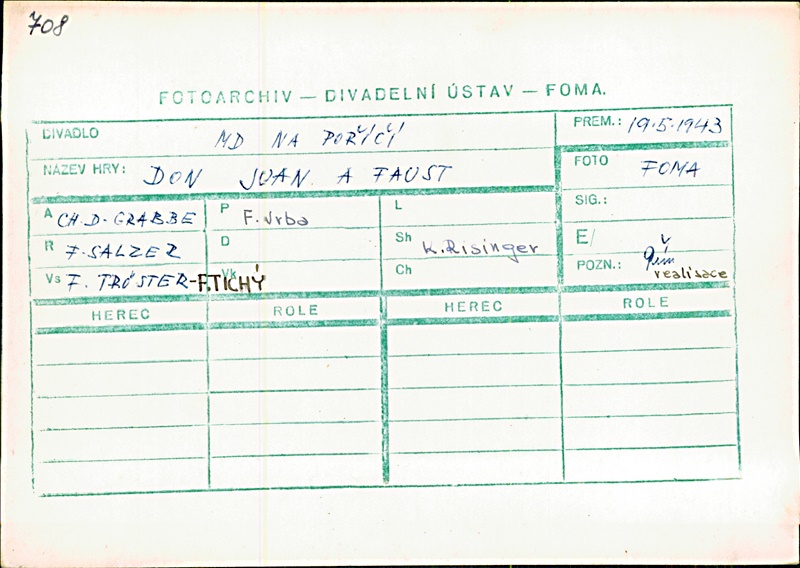 708
FOTOARCHIV — DIVADELNÍ ÚSTAV — FOMA.
DIVADLO MD NA POŘÍČÍ
PREM.: 19.5.1943
NÁZEV HRY: DON JUAN A FAUST
FOTO FOMA
A CH.D. GRABBE
P F. Vrba
L
SIG.:
R F. SALZER
D
Sh K. Risinger
E/
Vs F. TRÖSTER-F.TICHÝ
Vk
Ch
POZN.:
realisace
HEREC ROLE HEREC ROLE